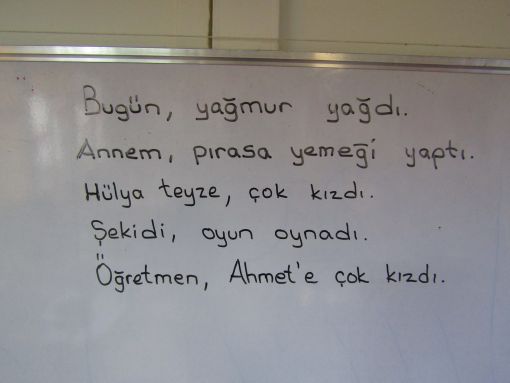 Bugün, yağmur yağdı.
Annem, pırasa yemeği yaptı.
Hülya teyze, çok kızdı.
Şekidi, oyun oynadı.
Öğretmen, Ahmet'e çok kızdı.